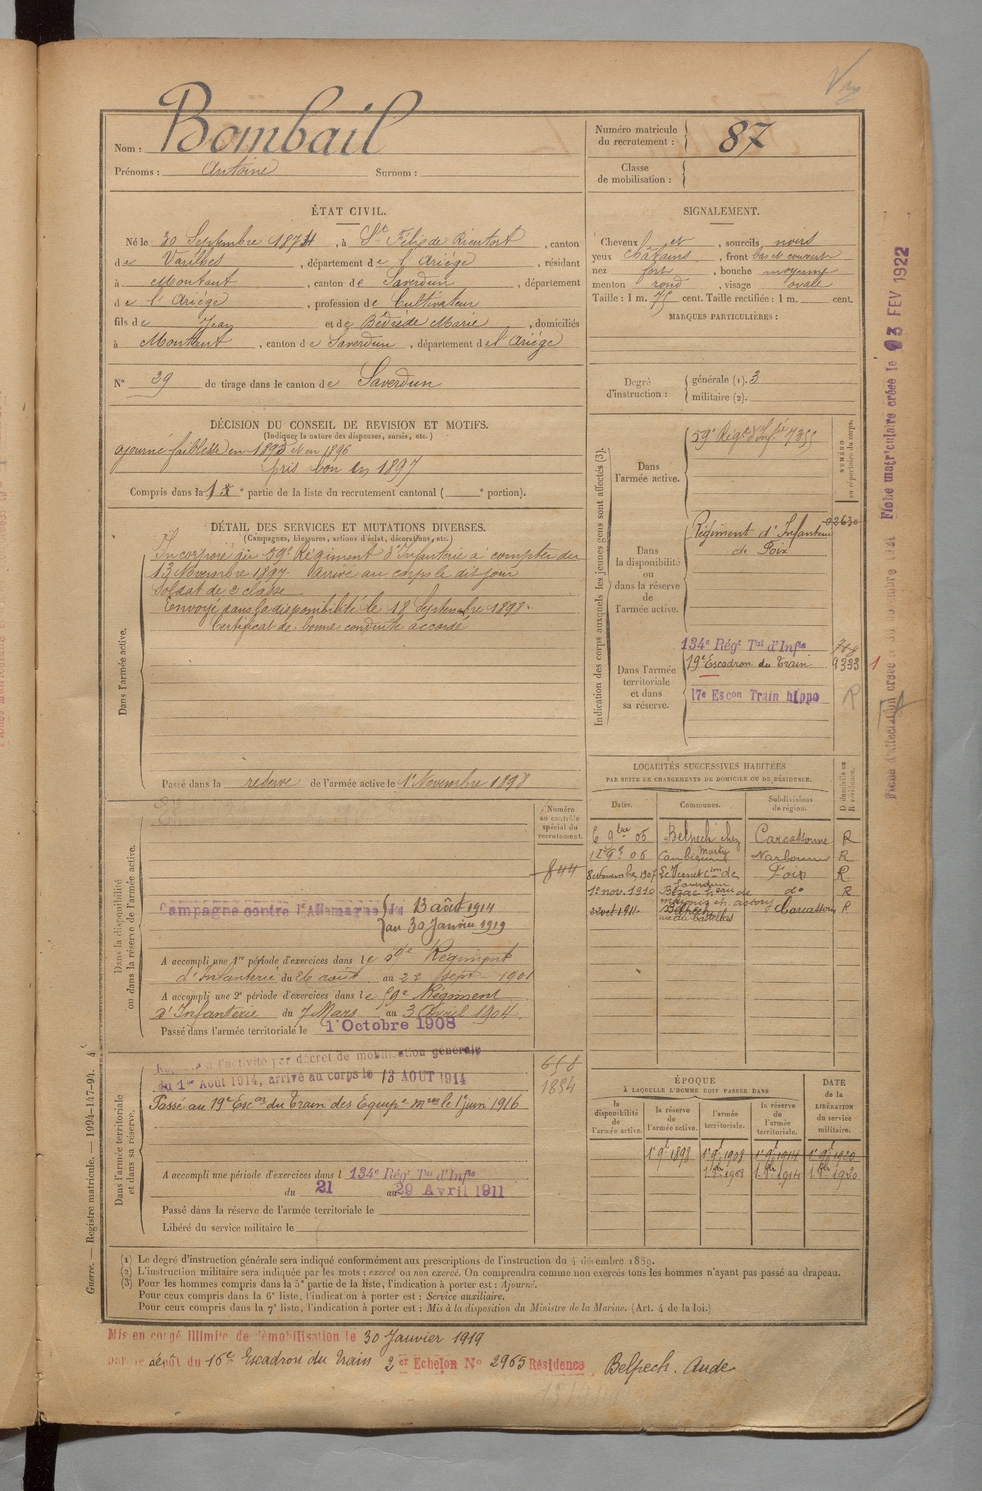 Nom : Bombail
Prénoms : Antoine Surnom :
Numéro matricule du recrutement : 87
Classe de mobilisation :
ÉTAT CIVIL.
Né le 30 Septembre 1874, à St Félix de Rieutort, canton
de Varilhes, département de l'Ariège, résidant
à Montaut, canton de Saverdun, département
de l'Ariège, profession de Cultivateur
fils de Jean et de Bédrède Marie, domiciliés
à Montaut, canton de Saverdun, département de l'Ariège
N° 29 de tirage dans le canton de Saverdun
SIGNALEMENT.
Cheveux et, sourcils noirs
yeux châtains, front bas et couvert
nez fort, bouche moyenne
menton rond, visage ovale
Taille : 1 m. 75 cent. Taille rectifiée : 1 m. cent.
MARQUES PARTICULIÈRES :
Degré d'instruction : générale (1). 3
militaire (2).
DÉCISION DU CONSEIL DE REVISION ET MOTIFS.
(Indiquer la nature des dispenses, sursis, etc.)
ajourné faiblesse en 1895 et en 1896
pris bon en 1897
Compris dans la 1re partie de la liste du recrutement cantonal ( e portion).
DÉTAIL DES SERVICES ET MUTATIONS DIVERSES.
(Campagnes, blessures, actions d'éclat, décorations, etc.)
Dans l'armée active.
Incorporé au 59e Régiment d'Infanterie à compter du
13 Novembre 1897. Arrivé au corps le dit jour
Soldat de 2e classe
Envoyé dans la disponibilité le 18 Septembre 1898.
Certificat de bonne conduite accordé
Passé dans la réserve de l'armée active le 1er Novembre 1898
Indication des corps auxquels les jeunes gens sont affectés (3).
NUMÉRO au répertoire du corps.
Dans l'armée active. 59e Régt d'Infie 7355
Dans la disponibilité ou dans la réserve de l'armée active. Régiment d'Infanterie de Foix 02630
Dans l'armée territoriale et dans sa réserve.
134e Régt Tal d'Infie
19e Escadron du Train 9333
17e Escon Train hippo R
LOCALITÉS SUCCESSIVES HABITÉES
PAR SUITE DE CHANGEMENTS DE DOMICILE OU DE RÉSIDENCE.
D domicile ou R résidence.
Dates. Communes. Subdivisions de région.
6 9bre 05 Belpech chez Carcassonne R
Narbonne R
Le Vernet con de Saverdun Foix R
1er nov. 1910 do R
22 oct 1911. Belpech Carcassonne R
Dans la disponibilité ou dans la réserve de l'armée active.
Numéro au contrôle spécial du recrutement.
844
Campagne contre l'Allemagne du 13 août 1914
au 30 Janvier 1919
A accompli une 1re période d'exercices dans le 59e Régiment
d'Infanterie du 26 août au 22 Sept 1901
A accompli une 2e période d'exercices dans le 59e Régiment
d'Infanterie du 7 Mars au 3 Avril 1904.
Passé dans l'armée territoriale le 1 Octobre 1908
Dans l'armée territoriale et dans sa réserve.
658
1854
à l'activité par décret de mobilisation générale
du 1er Août 1914, arrivé au corps le 13 AOUT 1914
Passé au 19e Escon du Train des Equipes mres le 1er juin 1916
A accompli une période d'exercices dans l 134e Régt Tal d'Infie
du 21 au 29 Avril 1911
Passé dans la réserve de l'armée territoriale le
Libéré du service militaire le
ÉPOQUE
À LAQUELLE L'HOMME DOIT PASSER DANS
DATE DE LA LIBÉRATION du service militaire.
la disponibilité de l'armée active. la réserve de l'armée active. l'armée territoriale. la réserve de l'armée territoriale.
1er 9bre 1898 1er 9bre 1908 1er 9bre 1914 1er 9bre 1920
1er 8bre 1908 1er 8bre 1914 1er 8bre 1920
(1) Le degré d'instruction générale sera indiqué conformément aux prescriptions de l'instruction du 4 décembre 1889.
(2) L'instruction militaire sera indiquée par les mots : exercé ou non exercé. On comprendra comme non exercés tous les hommes n'ayant pas passé au drapeau.
(3) Pour les hommes compris dans la 5e partie de la liste, l'indication à porter est : Ajourné.
Pour ceux compris dans la 6e liste, l'indication à porter est : Service auxiliaire.
Pour ceux compris dans la 7e liste, l'indication à porter est : Mis à la disposition du Ministre de la Marine. (Art. 4 de la loi.)
Guerre. — Registre matricule. — 1994-147-94.
Mis en congé illimité de démobilisation le 30 Janvier 1919
dépôt du 16e Escadron du Train 2er Echelon No 2965 Résidence Belpech. Aude
Fiche matriculaire créée le 03 FEV 1922